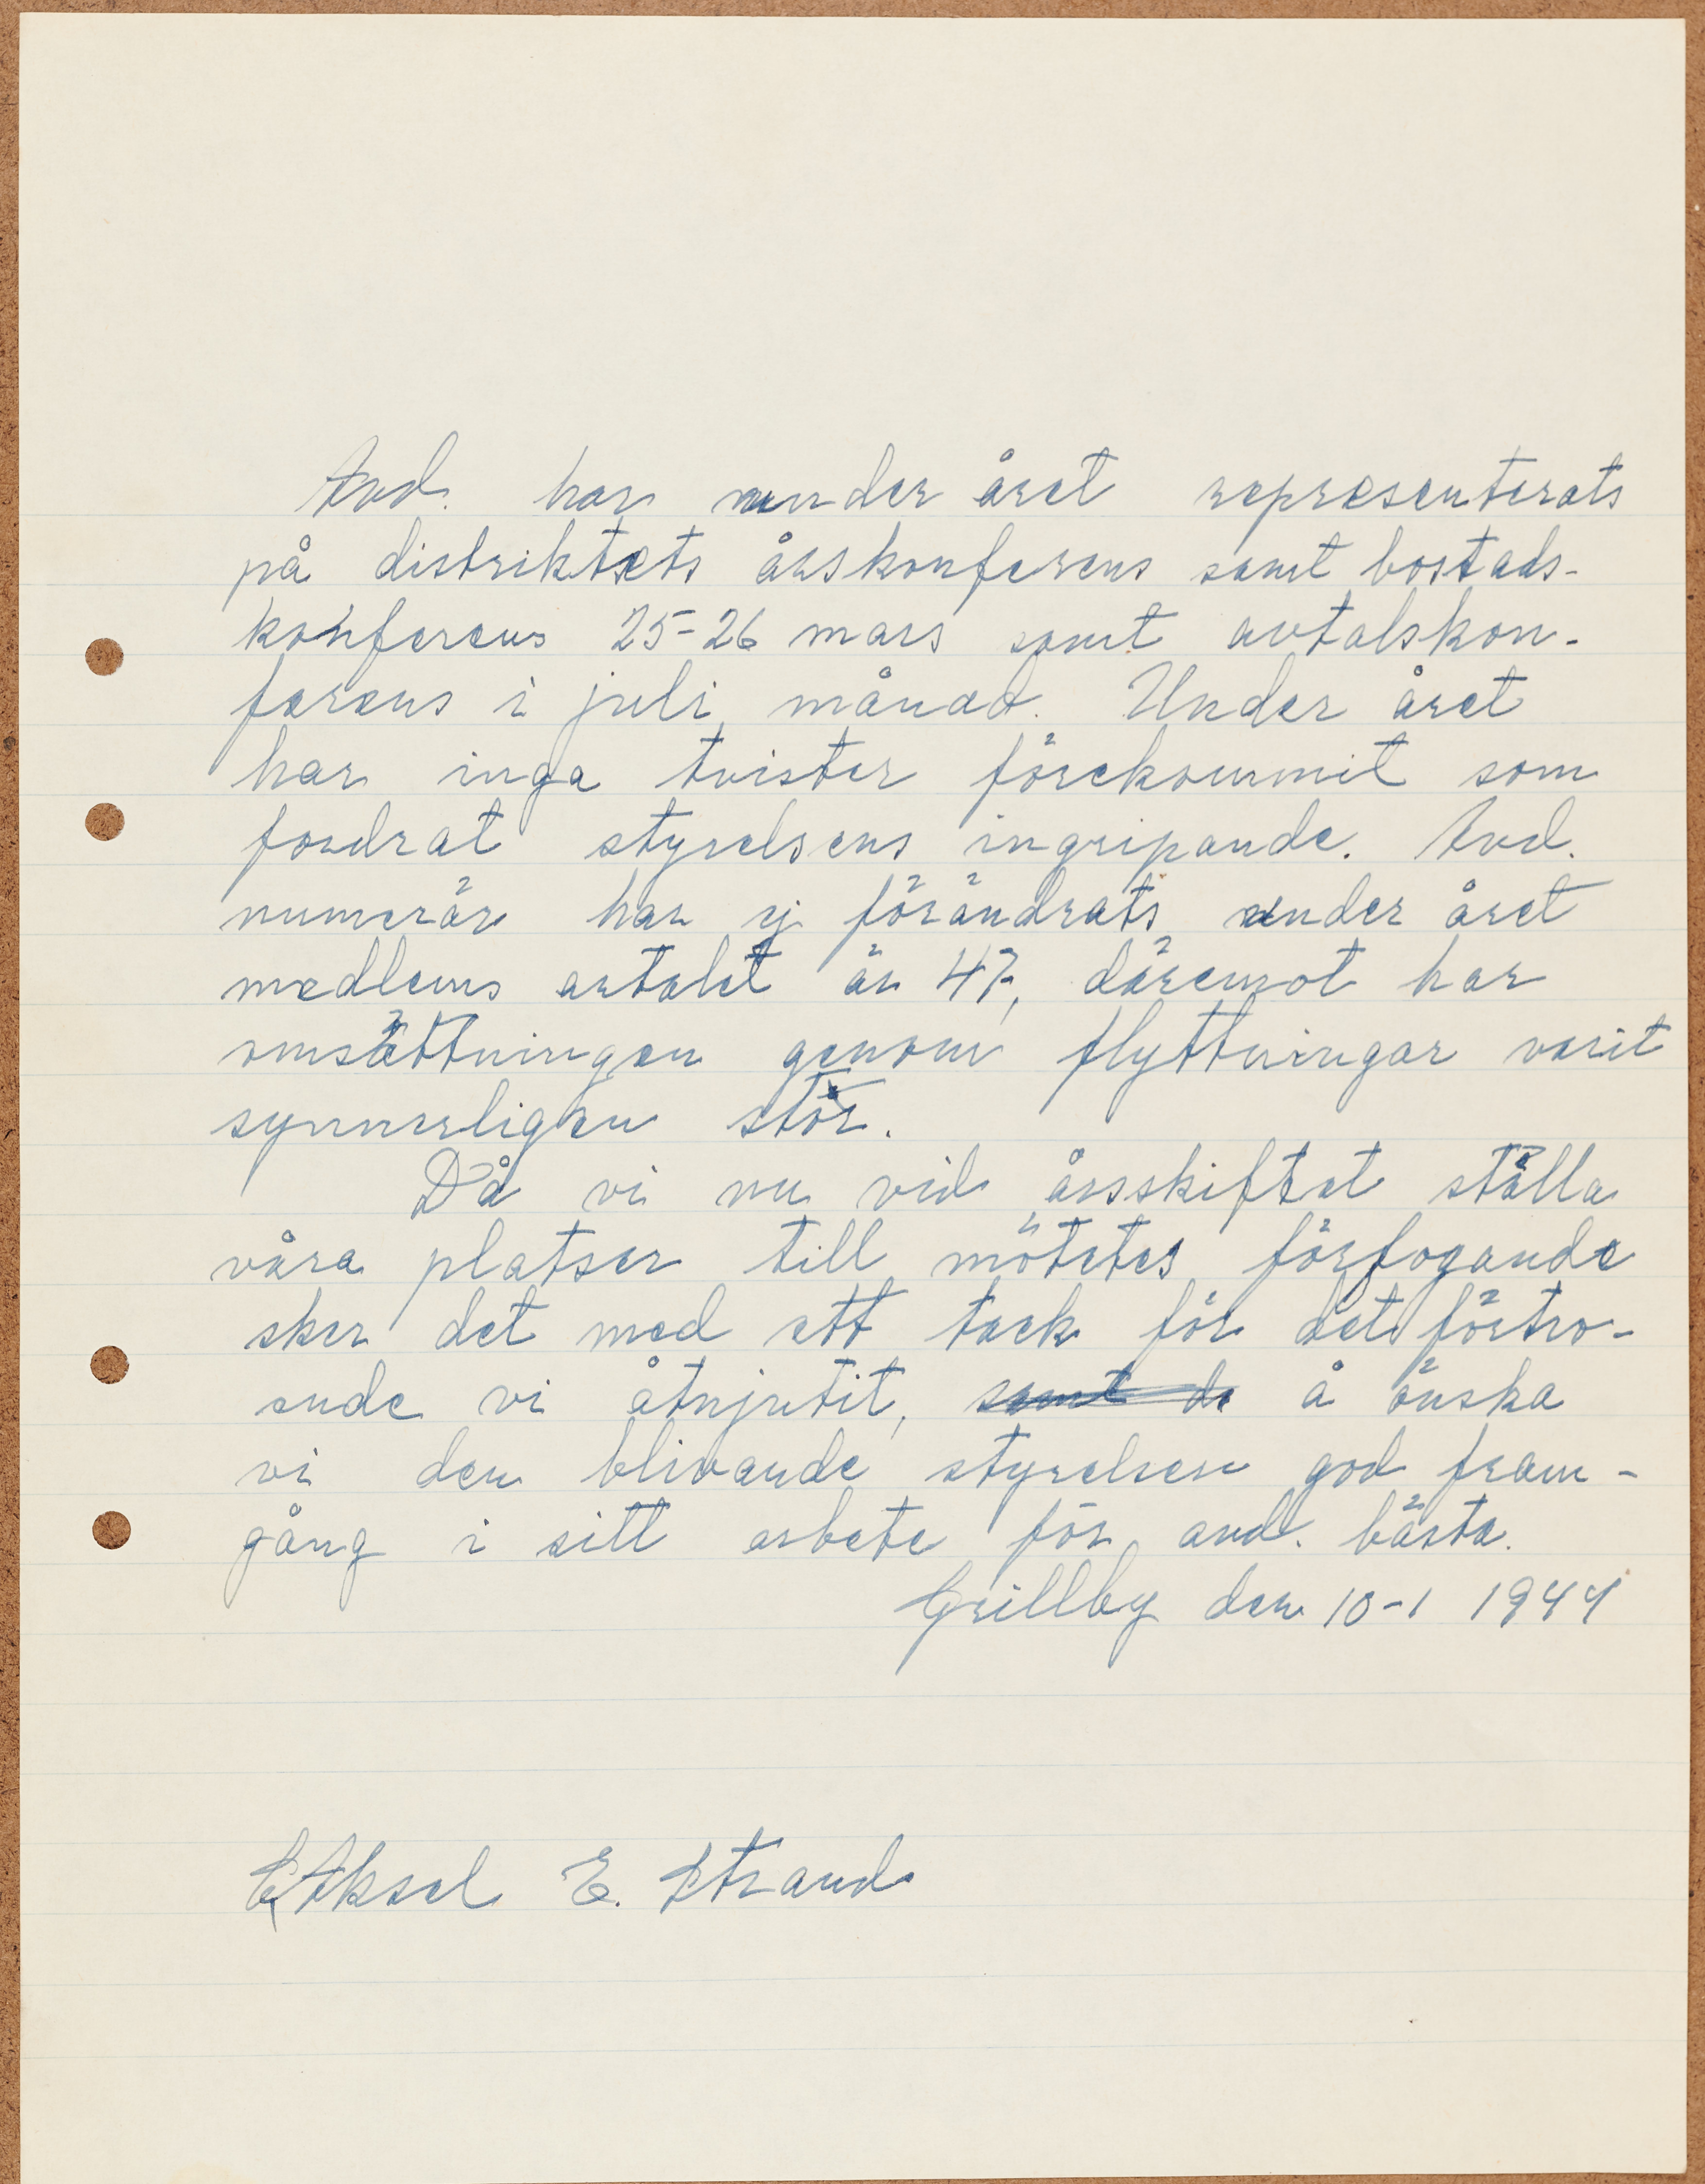 Avd. har under året representerats
på distriktets årskonferens samt bostads-
konferens 25-26 mars samt avtalskon-
ferens i juli månad. Under året
har inga tvister förekommit som
fordrat styrelsens ingripande. Avd.
numerär har ej förändrats under året
medlems antalet är 47, däremot har
omsättningen genom flyttningar varit
synnerligen stor.
Då vi nu vid årsskiftet ställa
våra platser till mötets förfogande
sker det med ett tack för det förtro-
ende vi åtnjutit, samt de å önska
vi den blivande styrelsen god fram-
gång i sitt arbete för avd. bästa.
Grillby den 10-1 1944
Aksel E. Strand